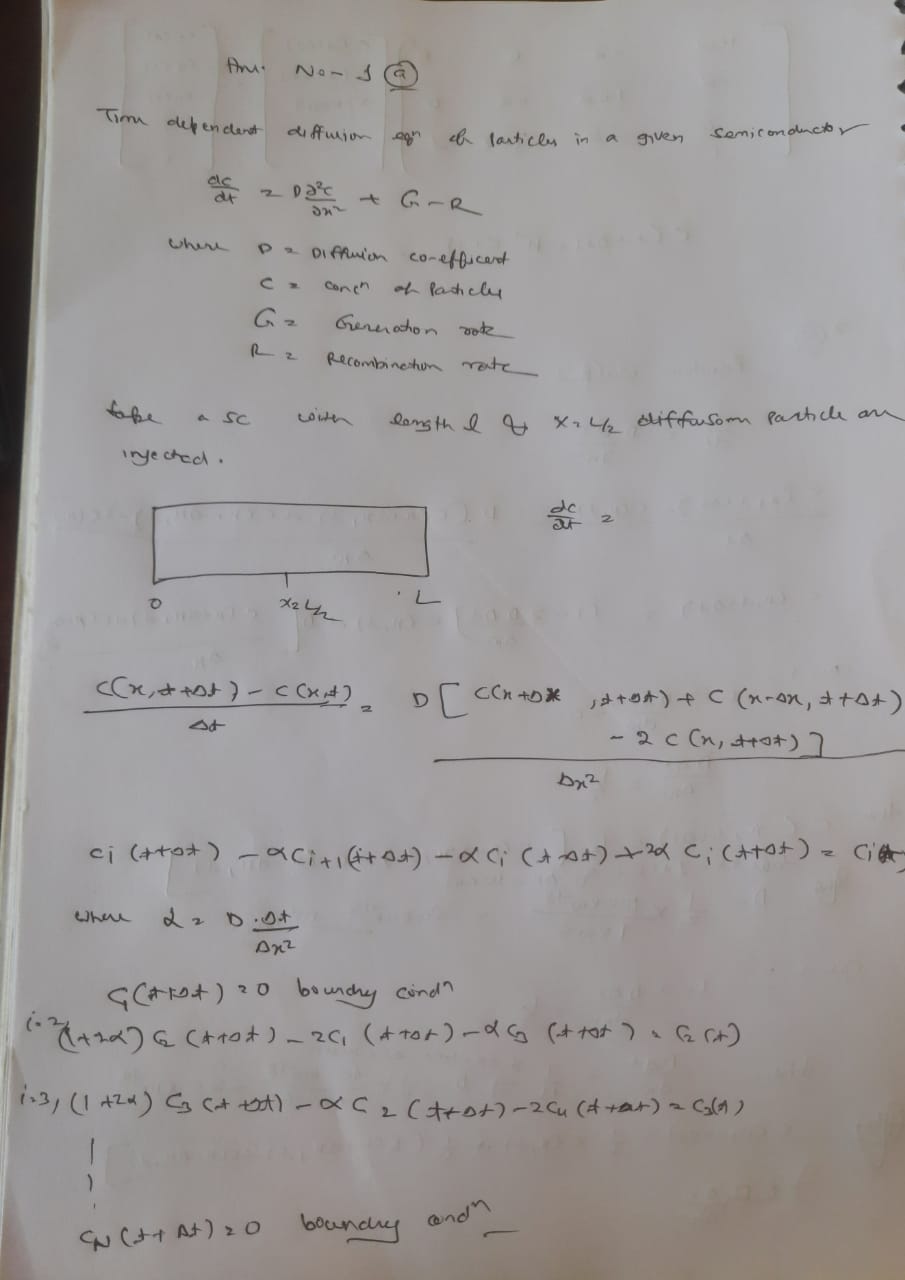 Ans. No - 1 (a)
Time dependent diffusion eqn of particles in a given semiconductor
dc/dt = D ∂²c/∂x² + G - R
where D = Diffusion co-efficent
C = concn of Particles
G = Generation rate
R = Recombination rate
take a SC with length l & x = L/2 diffusion particle are
injected.
dc/dt =
0 x = L/2 L
C(x, t+Δt) - C(x,t) / Δt = D [ C(x+Δx, t+Δt) + C(x-Δx, t+Δt)
- 2 C(x, t+Δt) ] / Δx²
Ci (t+Δt) - αCi+1 (t+Δt) - αCi (t+Δt) + 2α Ci (t+Δt) = Ci
where α = D.Δt / Δx²
C1(t+Δt) = 0 boundry condn
i=2, (1+2α) C2 (t+Δt) - 2C1 (t+Δt) - αC3 (t+Δt) = C2 (t)
i=3, (1+2α) C3 (t+Δt) - αC2 (t+Δt) - 2C4 (t+Δt) = C3(t)
CN (t+Δt) = 0 boundry condn